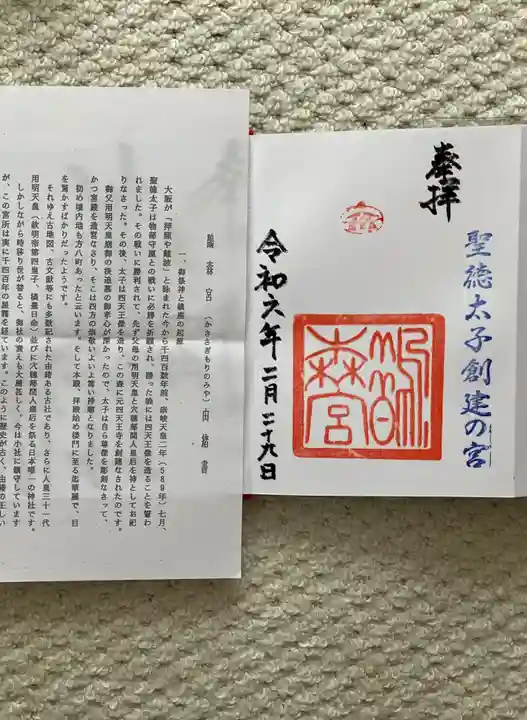 奉拝
聖徳太子創建の宮
鵲森宮
令和六年二月二十九日
鵲森宮(かささぎもりのみや)由緒書
一、御祭神と鎮座の起源
大阪が「押照や難波」と詠まれた今から千四百数年前、崇峻天皇二年(589年)七月、
聖徳太子は物部守屋との戦いに必勝を祈願され、勝った暁には四天王像を造ることを誓わ
れました。その戦いに勝利されて、先ず父母の用明天皇と穴穂部間人皇后を神としてお祀
りなさった。その後、太子は四天王像を造り、この森に元四天王寺を創建なされたのです。
御父用明天皇崩御の後追慕の御孝心が深かったので、太子は自ら尊像を彫刻なさって、
かつ宮殿を造営なさり、そこは四方の崇敬いよいよ篤い神廟となりました。
初め境内地も方八町あったと云います。そして本殿、拝殿始め楼門に至る迄華麗で、目
を驚かすばかりだったようです。
それゆえ古地図、古文献等にも多数記された由緒ある古社であり、さらに人皇三十一代
用明天皇(欽明帝第四皇子、橘豊日命)並びに穴穂部間人皇后を祭る日本唯一の神社です。
しかしながら時移り世が替ると、御社の衰えも大層甚しく、今は小社に鎮守しています
が、この宮所は実に千四百年の星霜を経ています。このように歴史が古く、由緒の正しい